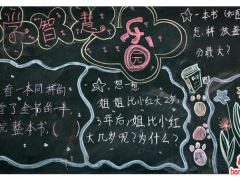 学智慧乐园
有一本同样的
看了全书的一半
完整本书,
☆想一想
姐姐比小红大2岁,
3年后,姐姐比小红
大几岁呢?为什么?
一本书(如图
怎样放盖
的最大?